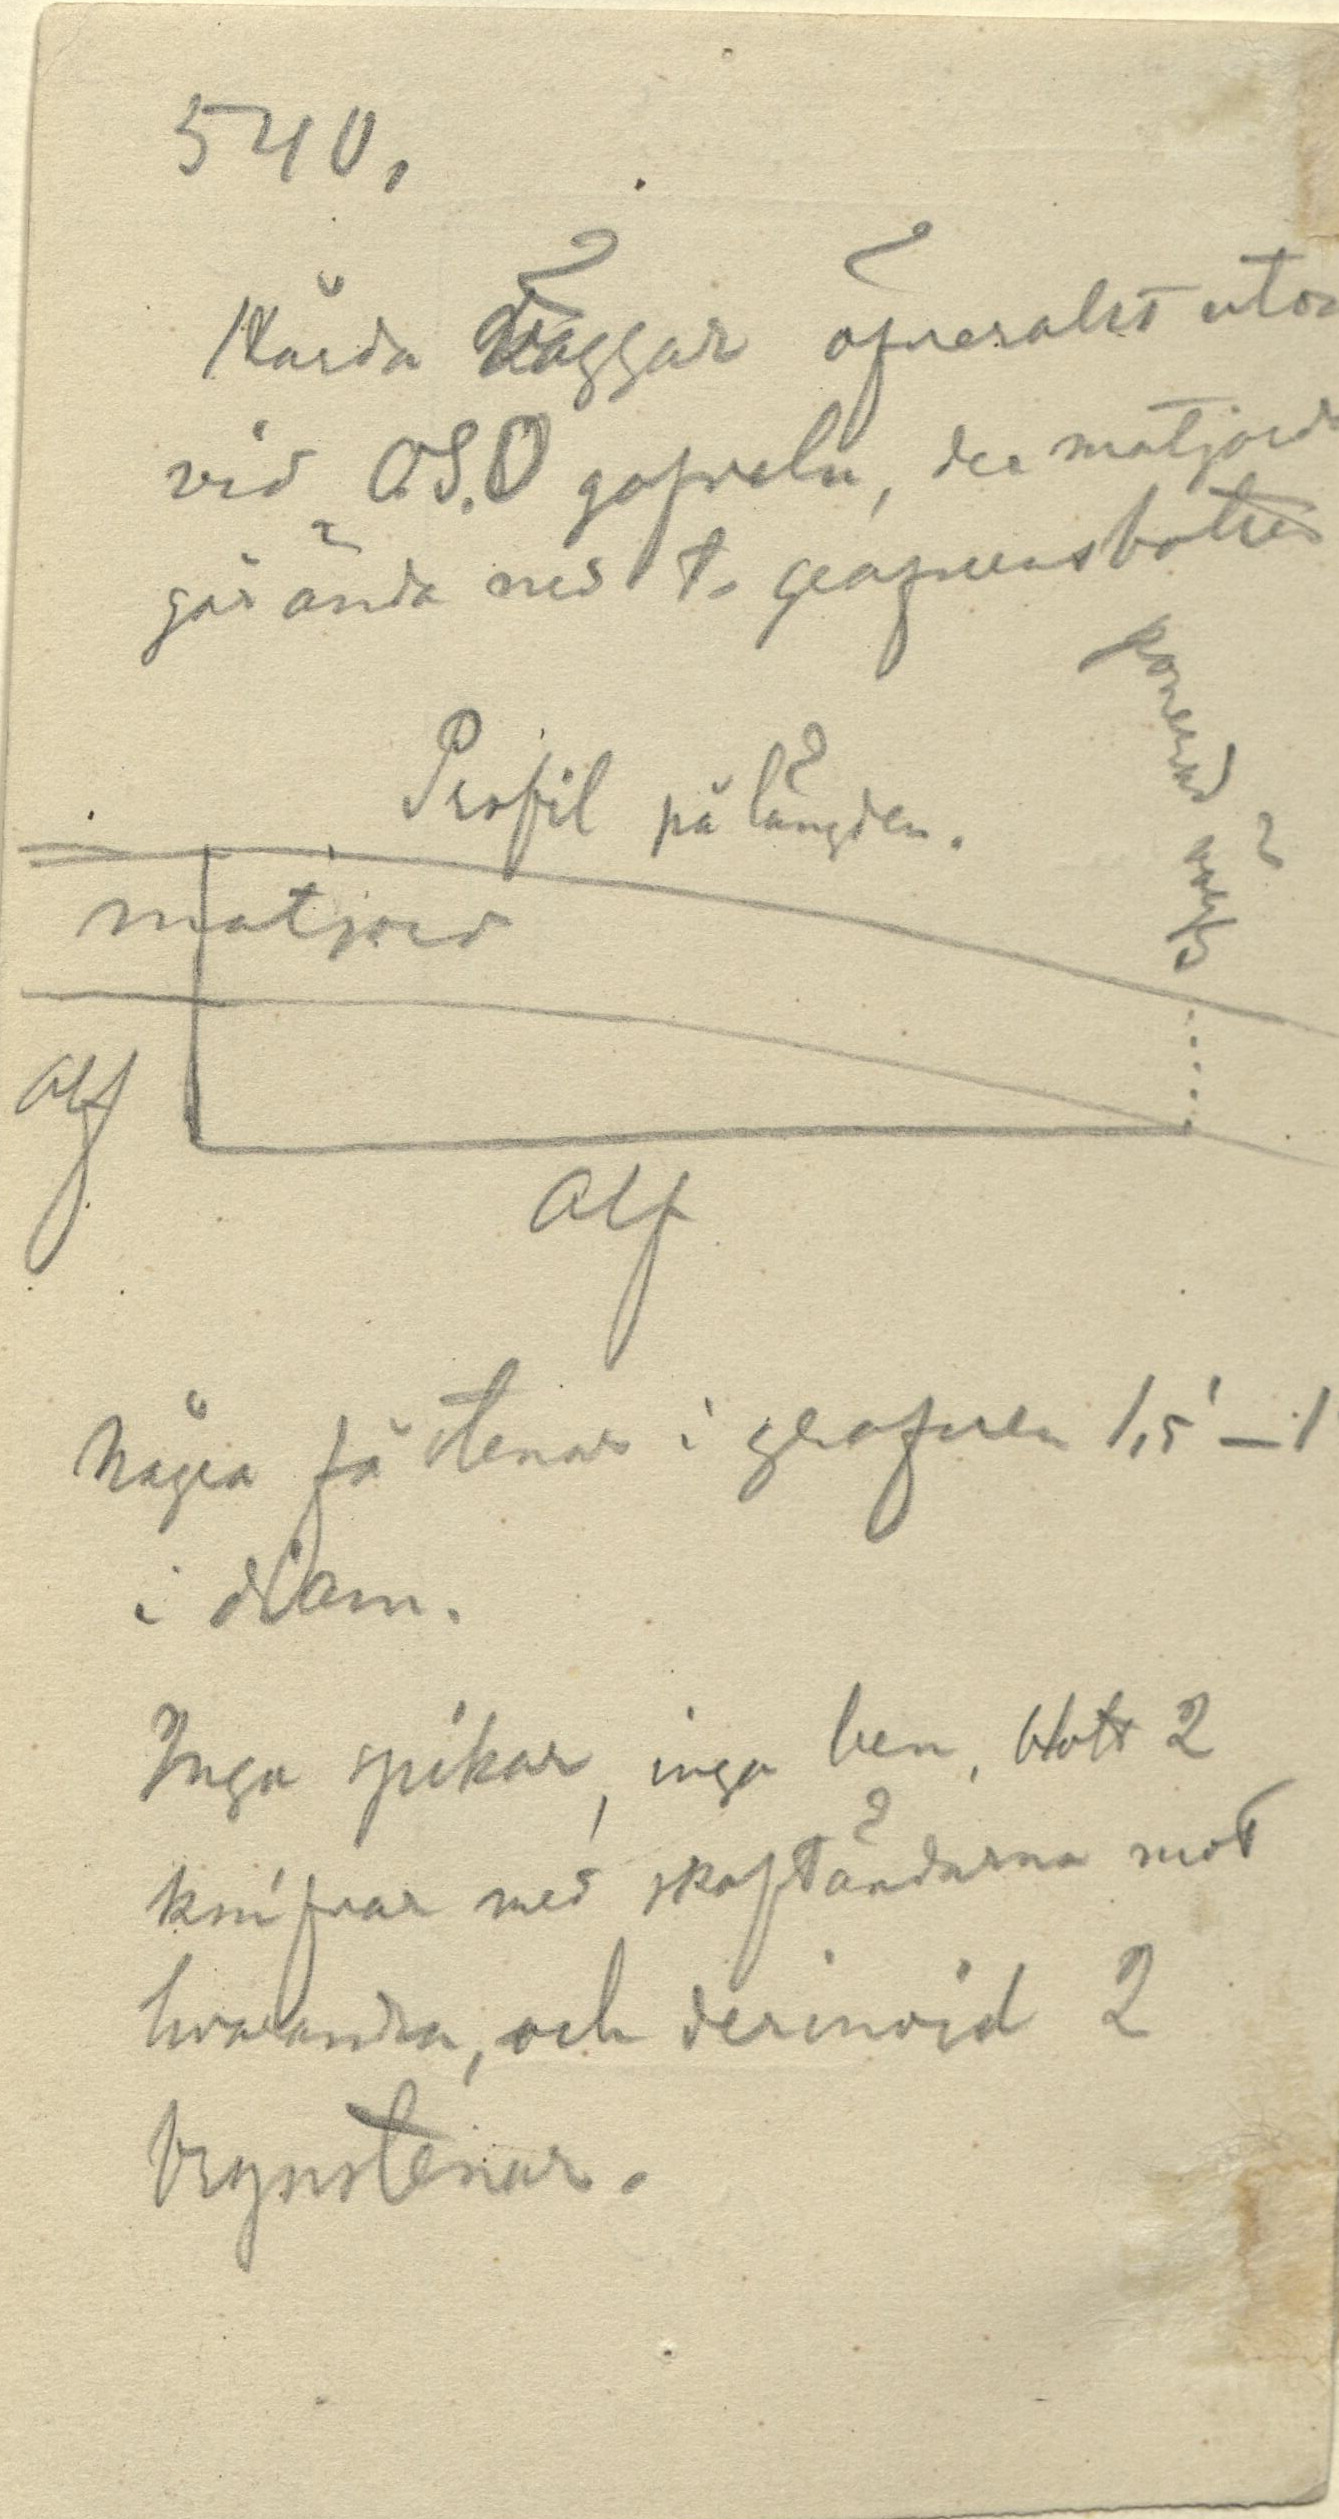 540.
Hårda väggar öfveralt utom
vid O.S.O gafveln, der matjord
går ända ned t. grafvens botten
Profil på längden.
matjord
alf
alf
Några få stenar i grafven 1,5' – 1
i diam.
Inga spikar, inga ben, blott 2
knifvar med skaftändarna mot
hvarandra, och derinvid 2
brynstenar.